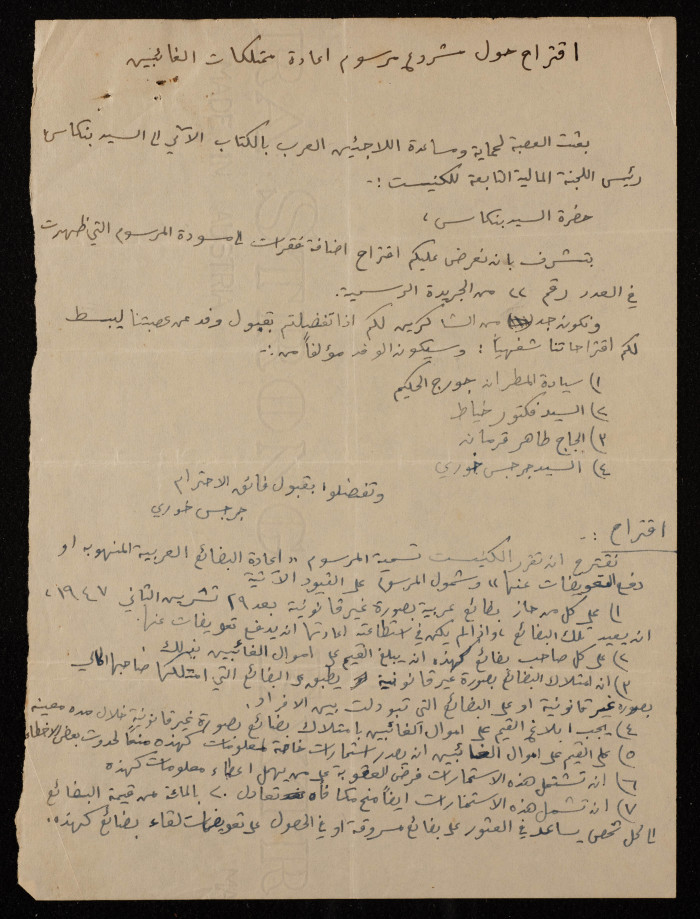 اقتراح حول مشروع مرسوم اعادة ممتلكات الغائبين
بعثت العصبة لحماية ومساعدة اللاجئين العرب بالكتاب الآتي الى السيد بنكاس،
رئيس اللجنة المالية التابعة للكنيست :-
حضرة السيد بنكاس ،
نتشرف بان نعرض عليكم اقتراح اضافة فقرات الى مسودة المرسوم التي ظهرت
في العدد رقم ٢٢ من الجريدة الرسمية.
ونكون جد من الشاكرين لكم اذا تفضلتم بقبول وفد عن عصبتنا ليبسط
لكم اقتراحاتنا شفهياً ; وسيكون الوفد مؤلفاً من :-
١) سيادة المطران جورج الحكيم
٢) السيد فكتور خياط
٣) الحاج طاهر قرمان
٤) السيد جرجس خوري
وتفضلوا بقبول فائق الاحترام
جرجس خوري
اقتراح :-
نقترح ان تقرر الكنيست تسمية المرسوم "اعادة البضائع العربية المنهوبه او
دفع التعويضات عنها" وشمول المرسوم على القيود الآتية
١) على كل من حاز بضائع عربية بصورة غير قانونية بعد ٢٩ تشرين الثاني ١٩٤٧ ،
ان يعيد تلك البضائع ، واذا لم يكن في استطاعته اعادتها ان يدفع تعويضات عنها.
٢) على كل صاحب بضائع كهذه ان يبلغ القيم على اموال الغائبين بذلك
٣) ان امتلاك البضائع بصورة غير قانونية يطبق على البضائع التي امتلكها صاحبها الحالي
بصورة غير قانونية او على البضائع التي تبودلت بين الافراد.
٤) يجب ابلاغ القيم على اموال الغائبين بامتلاك بضائع بصورة غير قانونية خلال مدة معينة
٥) على القيم على اموال الغائبين ان يصدر استمارات خاصة لمعلومات كهذه منعاً لحدوث بعض الاخطاء
٦) ان تشتمل هذه الاستمارات فرض العقوبة على من يهمل اعطاء معلومات كهذه
٧) ان تشمل هذه الاستمارات ايضاً منح مكافأه تعادل ٢٠ بالمائة من قيمة البضائع
الى كل شخص يساعد في العثور على بضائع مسروقة او في الحصول على تعويضات لقاء بضائع كهذه.